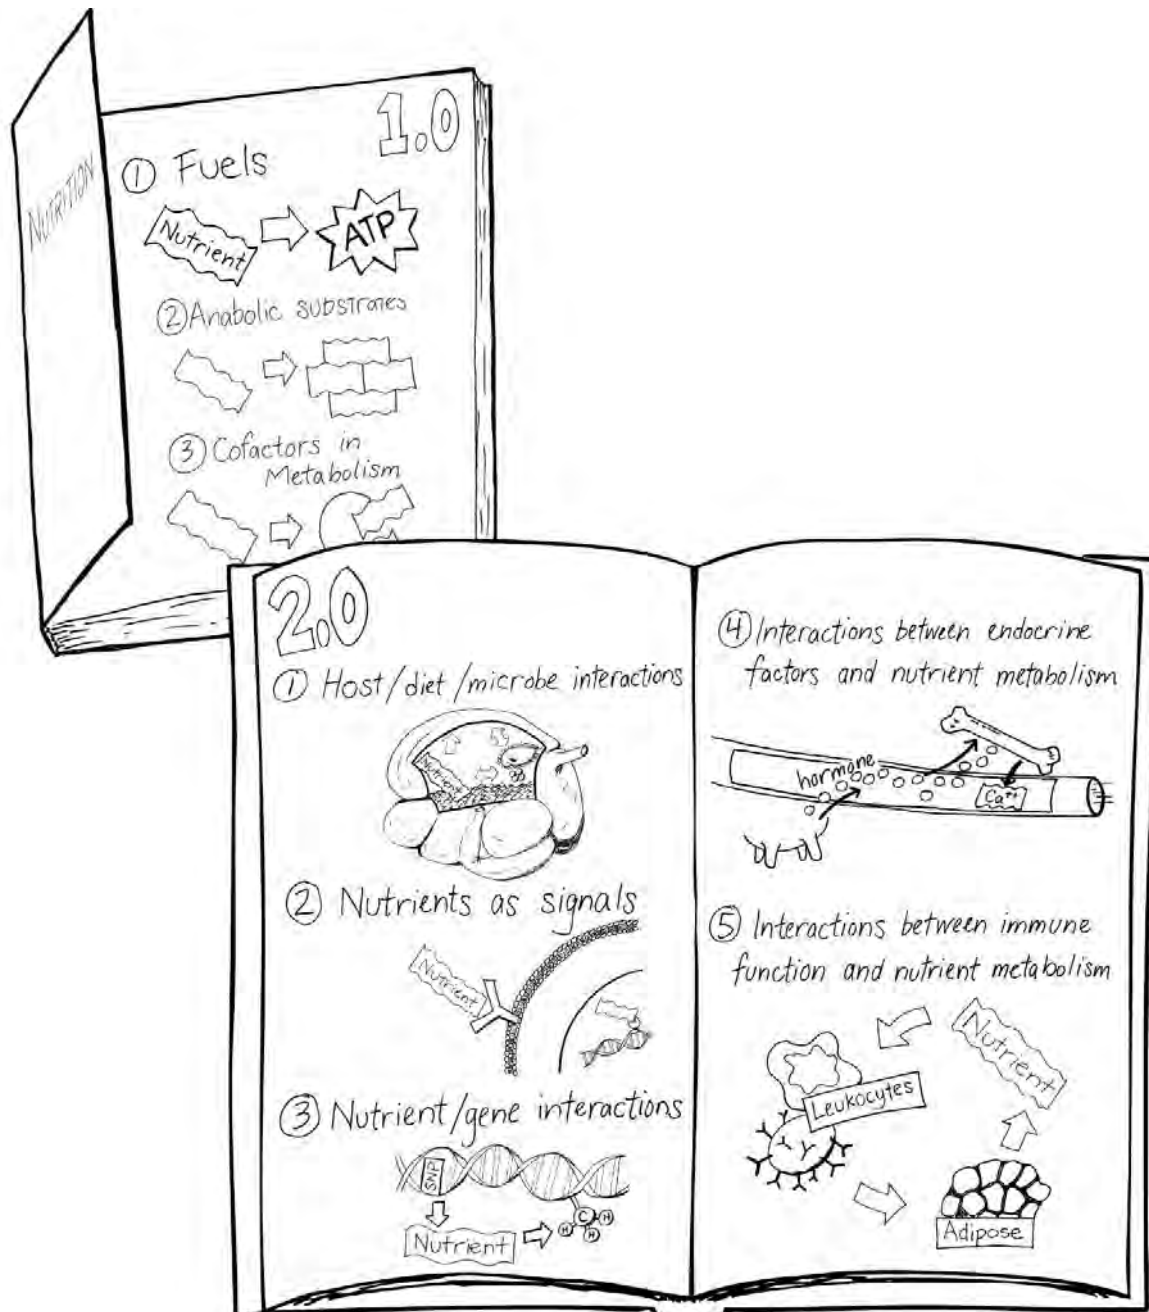 NUTRITION
1.0
① Fuels
Nutrient
ATP
② Anabolic substrates
③ Cofactors in
Metabolism
2.0
① Host/diet/microbe interactions
Nutrient
② Nutrients as signals
Nutrient
③ Nutrient/gene interactions
SNP
Nutrient
C
H
H
H
④ Interactions between endocrine
factors and nutrient metabolism
hormone
Ca⁺⁺
⑤ Interactions between immune
function and nutrient metabolism
Nutrient
Leukocytes
Adipose